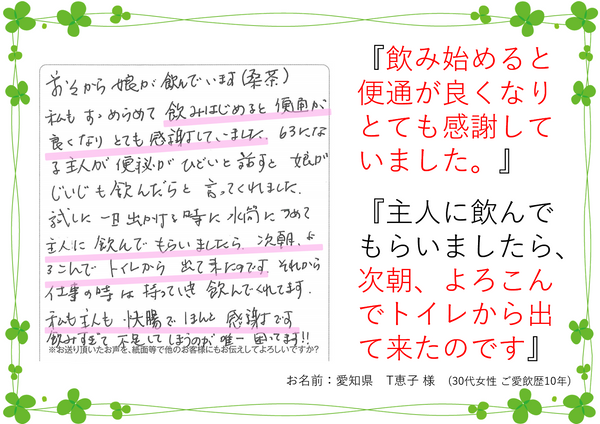 おそから娘が飲んでいます(桑茶)
私もすすめらめて 飲みはじめると 便通が
良くなり とても感謝していました。63にな
る主人が便秘がひどいと話すと 娘が
じいじも飲んだらと 言ってくれました。
試しに一日出かける時に水筒につめて
主人に飲んでもらいましたら、次朝、よ
ろこんでトイレから 出て来たのです。それから
仕事の時は持っていき飲んでくれてます。
私も主人も 快腸で ほんと 感謝です
飲みすぎて 不足してしまうのが唯一困ってます!!
※お送り頂いたお声を、紙面等で他のお客様にもお伝えしてよろしいですか?
『飲み始めると
便通が良くなり
とても感謝して
いました。』
『主人に飲んで
もらいましたら、
次朝、よろこん
でトイレから出
て来たのです』
お名前:愛知県 T恵子 様 (30代女性 ご愛飲歴10年)